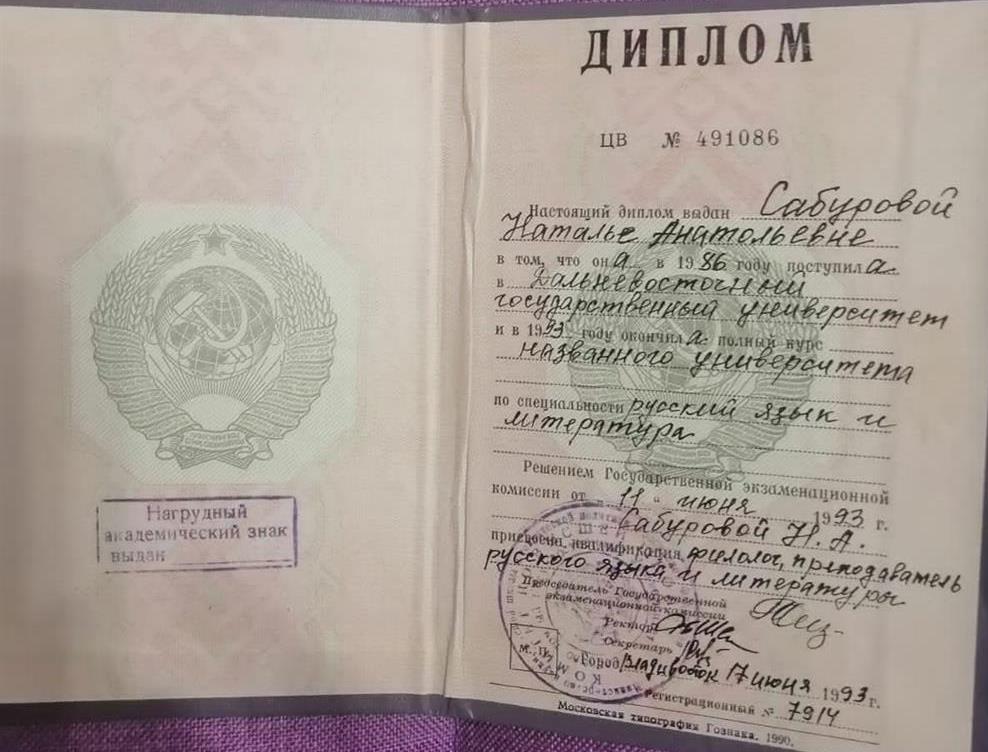 Нагрудный
академический знак
выдан
ДИПЛОМ
ЦВ № 491086
Настоящий диплом выдан Сабуровой
Наталье Анатольевне
в том, что она в 1986 году поступила
в Дальневосточный
государственный университет
и в 1993 году окончила полный курс
названного университета
по специальности русский язык и
литература
Решением Государственной экзаменационной
комиссии от „11“ июня 1993 г.
Сабуровой Н. А.
присвоена квалификация филолог, преподаватель
русского языка и литературы
Председатель Государственной
экзаменационной комиссии
Ректор
Секретарь
М. П. Город Владивосток 17 июня 1993 г.
Регистрационный № 7914
Московская типография Гознака. 1990.